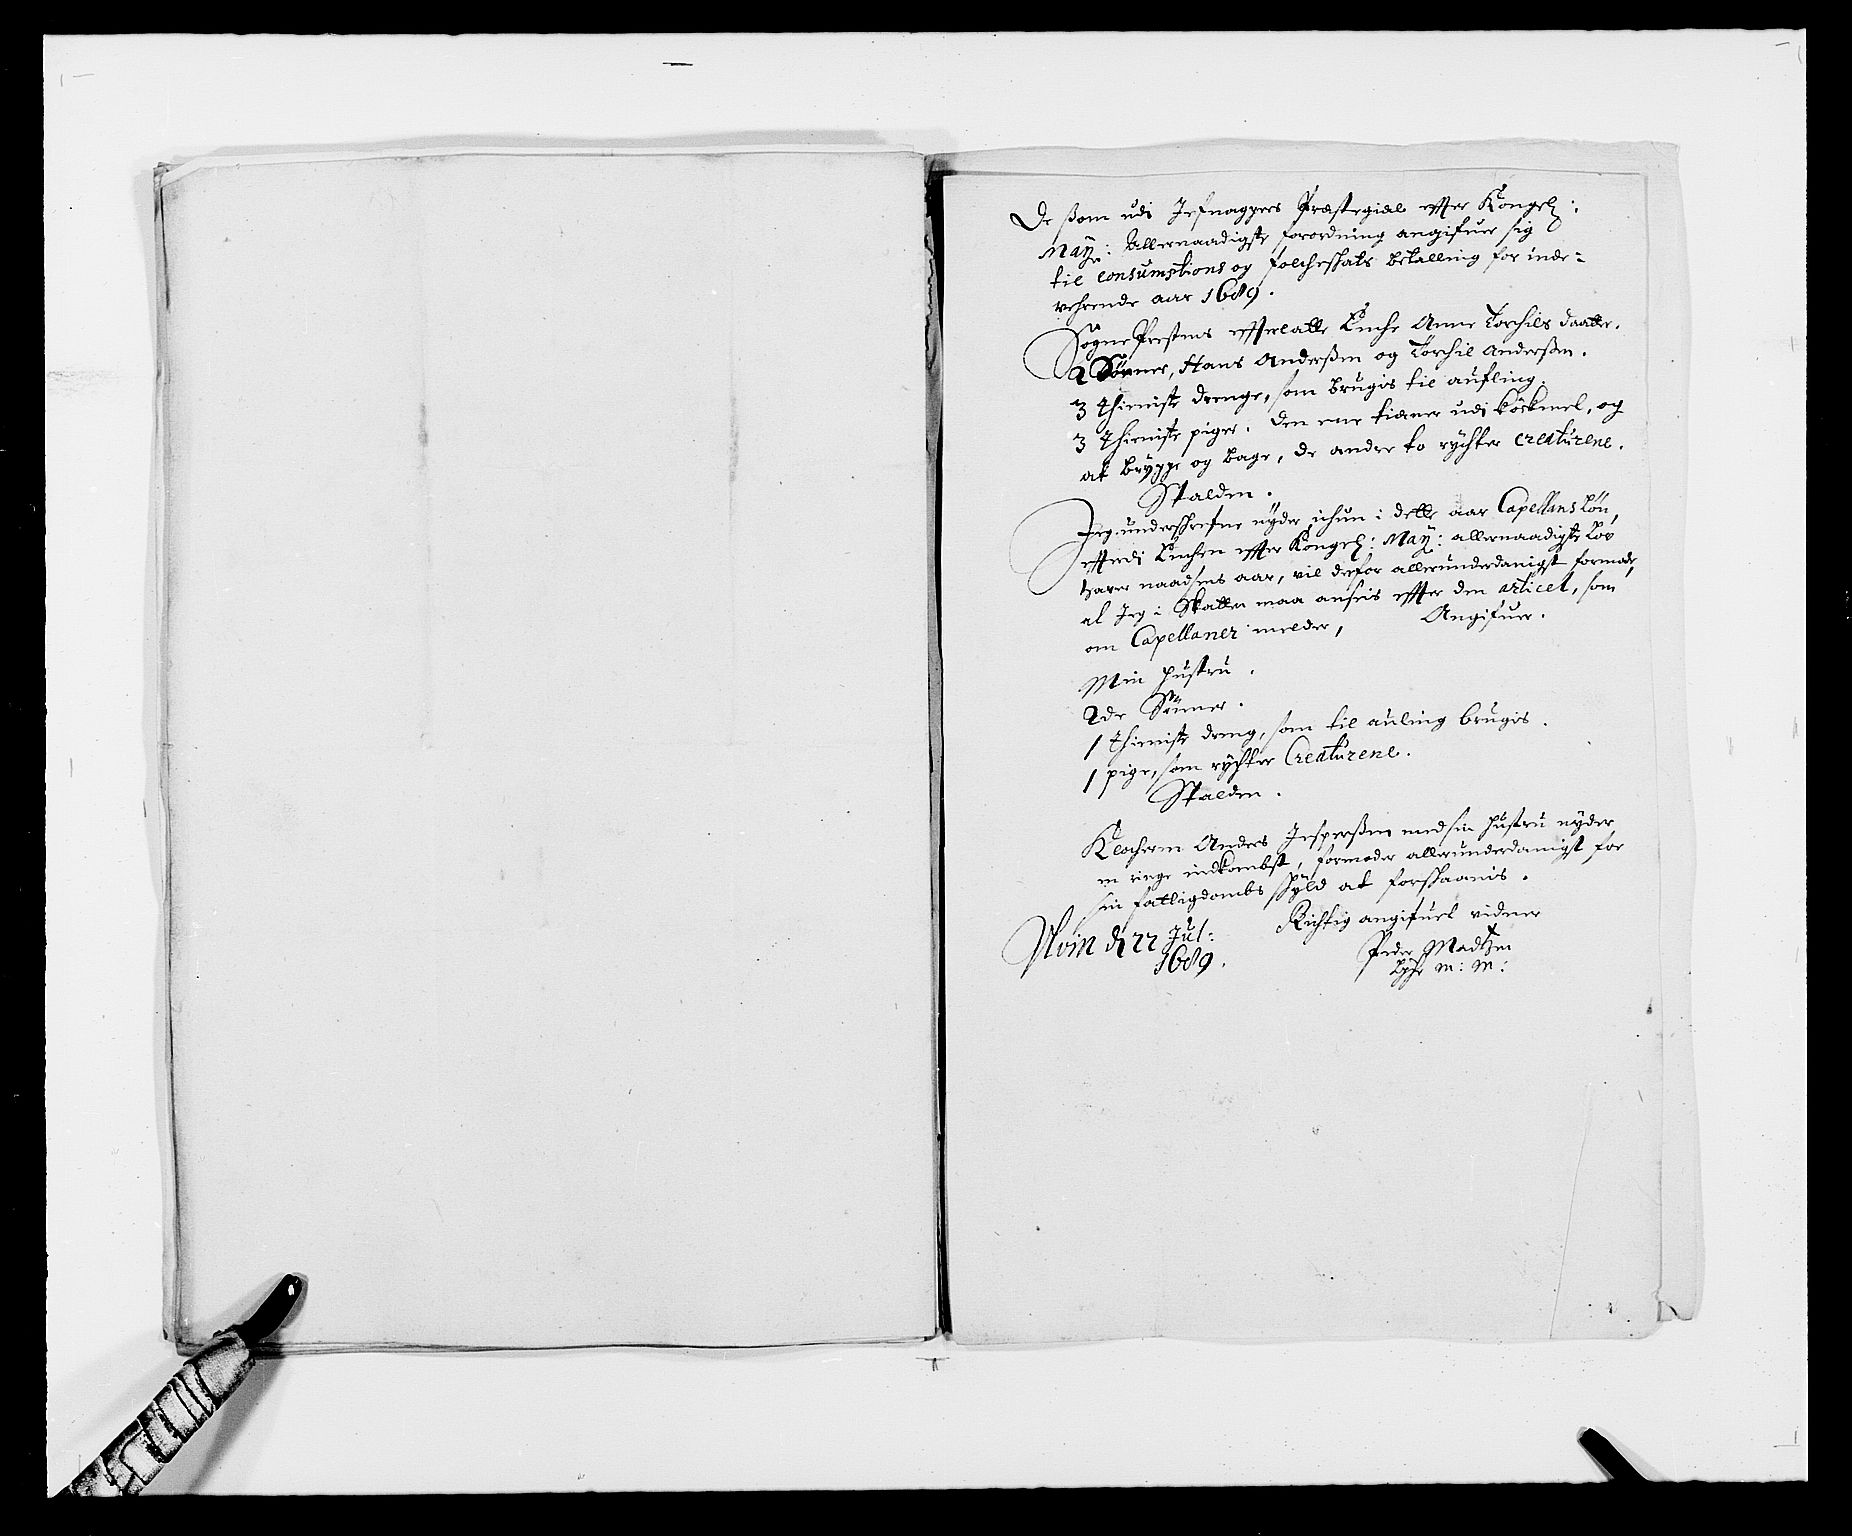 De ßom udi Jefnagers Præstegiæl effter Kongel:
May: Allernaadigste forordning angifuer sig
til Consumptions og folcheskats betalling for inde-
vehrende aar 1689.
Sogne Prestens effterlatte Enche Anne Torchils daatter.
2 Sönner, Hans Anderßen og Torchil Anderßen.
3 Thieniste drenge, som brugis til aufling.
3 Thieniste piger. Den ene tiæner udi köckenet, og
at brygge og bage, de andre to rychter Creaturene.
Stalden.
Jeg underschrefne nyder ichun i dette aar Capellans lön,
efftterdi Enchen effter Kongel: May: allernaadigste Lov
harer naadsens aar, vil derfor allerunderdanigst formode,
at Jeg i Skatten maa ansees effter den articel, som
om Capellaner melder, Angifuer.
Min hustru.
2de Sönner.
1 Thieniste dreng, som til auling brugis.
1 pige, som rychter Creaturene.
Stalden.
Klocheren Anders Jesperßen med sin hustru nyder
en ringe indkombst, formoder allerunderdanigst for
sin fattigdombs skyld at forskaanis.
Richtig angifuet vidner
Moin d 22 Jul:
1689.
Peder Madtzen
m: m: